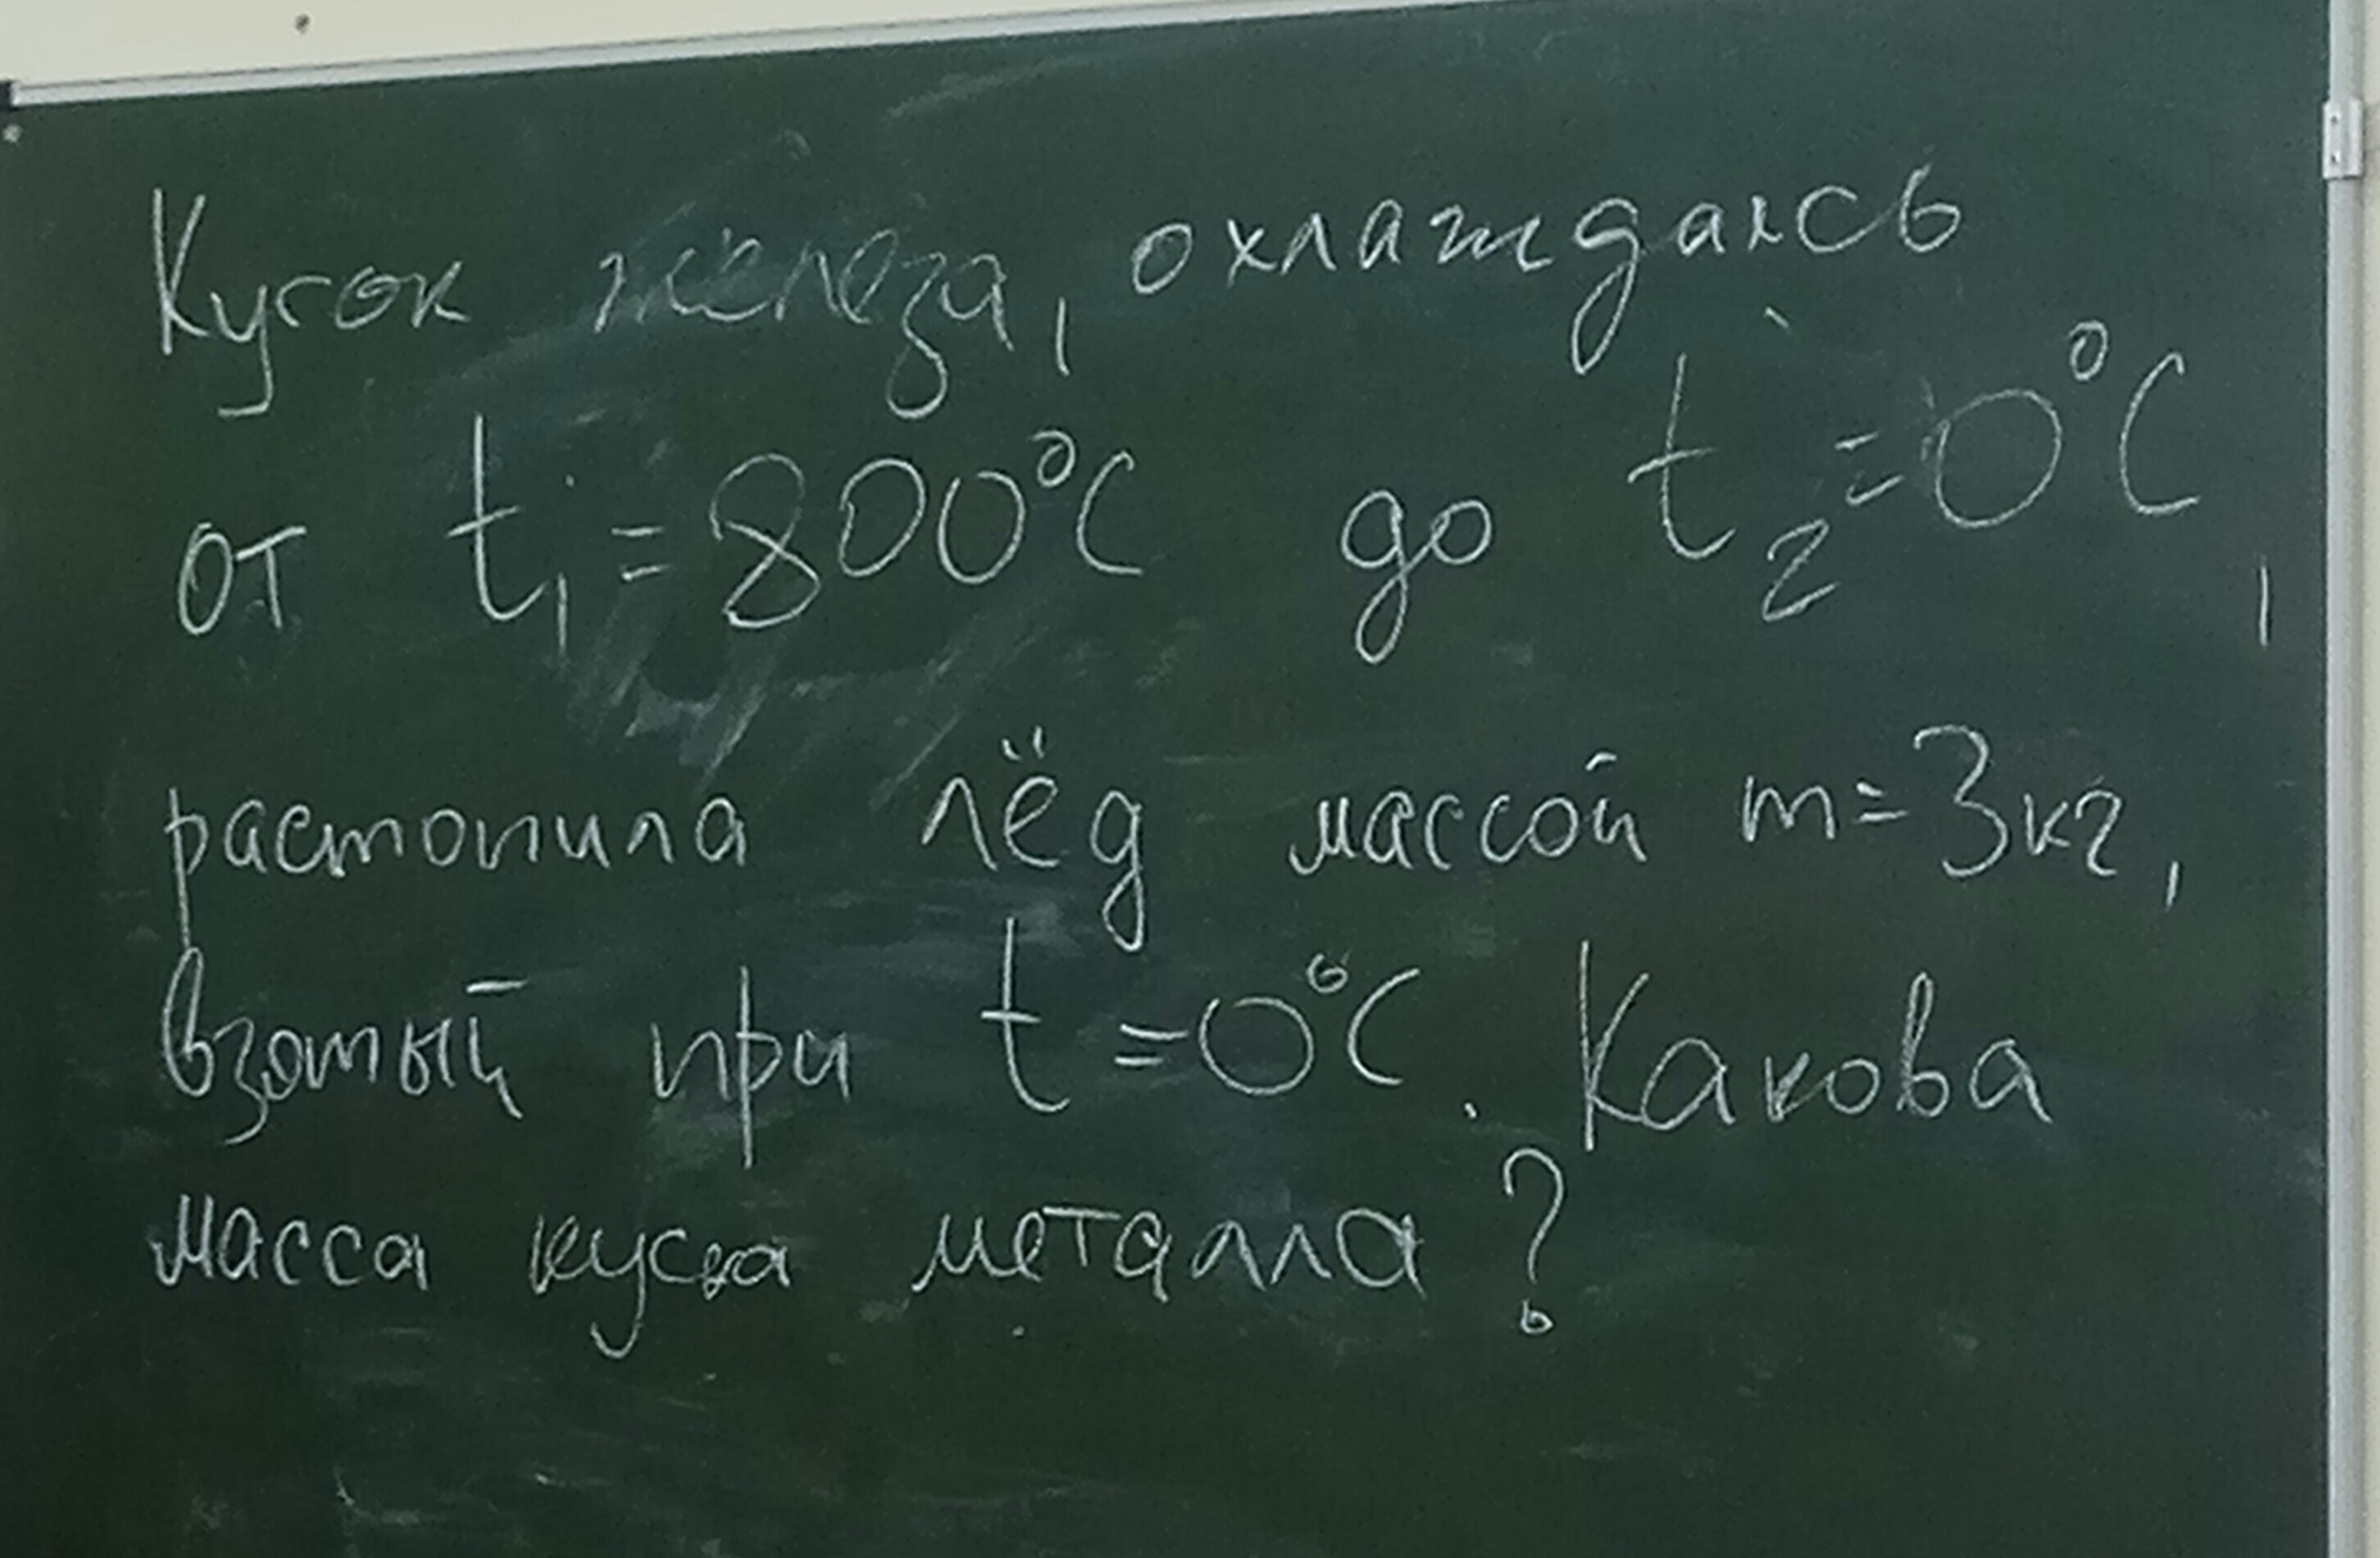 Кусок железа, охлаждаясь
от t₁=800°C до t₂=0°C,
растопила лёд массой m=3кг,
взятый при t=0°C. Какова
масса куска металла?